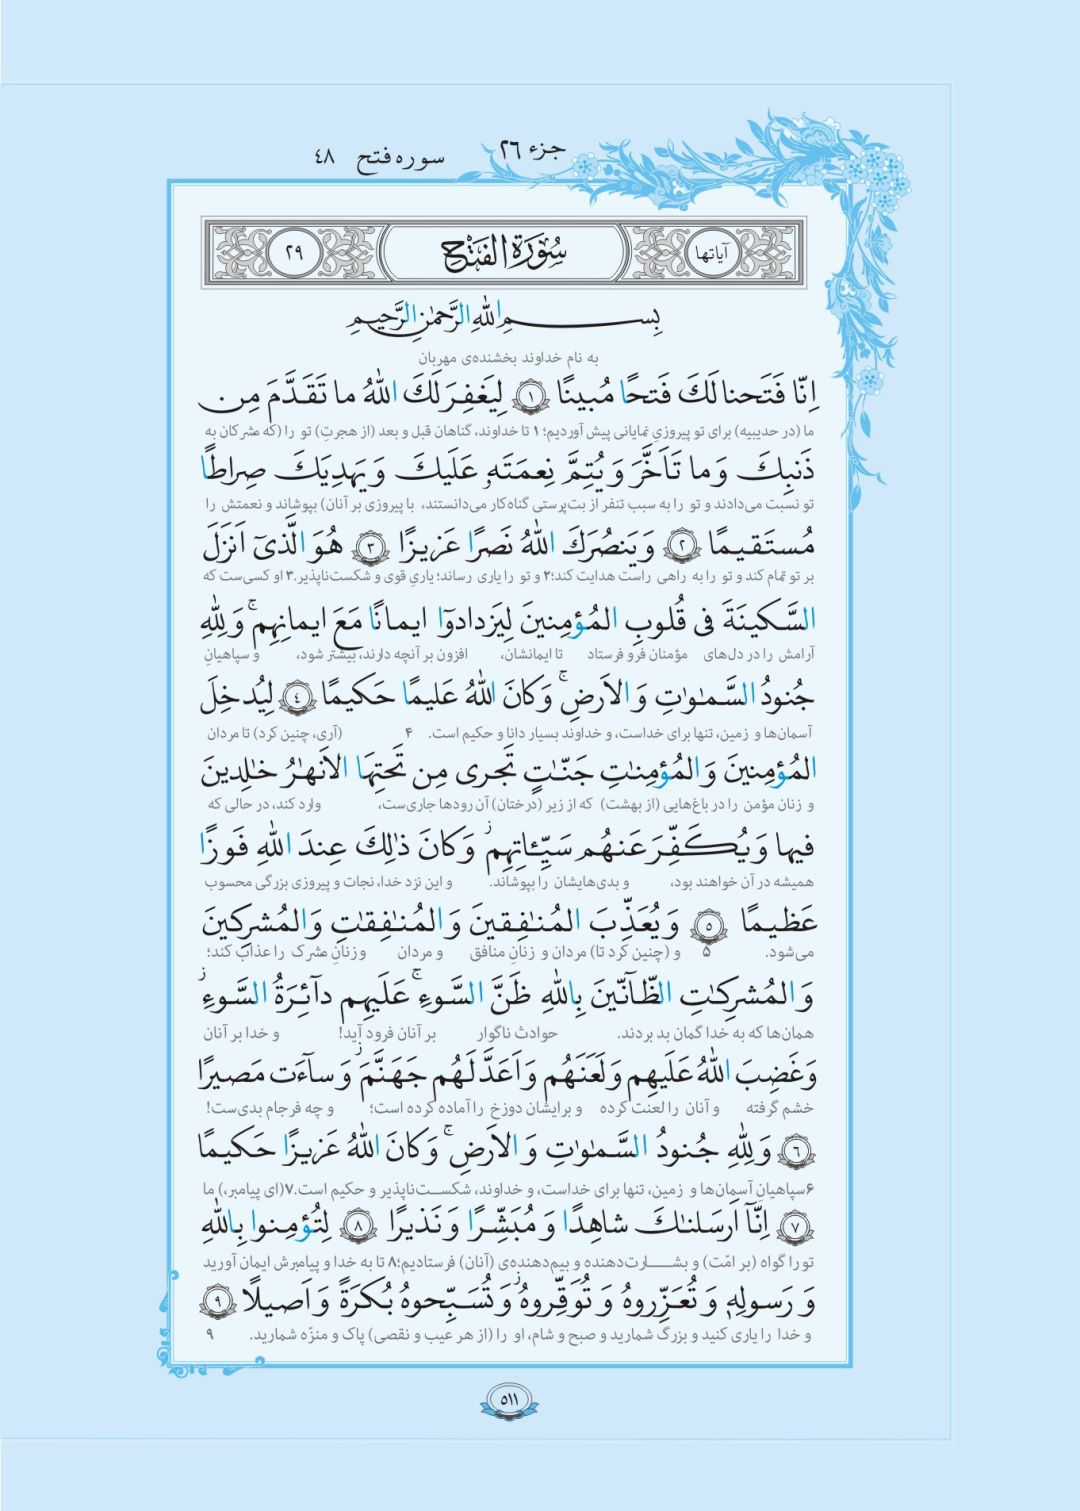 جزء ۲۶
سوره فتح ۴۸
آیاتها
سُورَةُ الفَتْحِ
۲۹
بِسمِ اللّٰهِ الرَّحمٰنِ الرَّحیمِ
به نام خداوند بخشنده‌ی مهربان
اِنّا فَتَحنا لَكَ فَتحًا مُبینًا ﴿١﴾ لِیَغفِرَ لَكَ اللّٰهُ ما تَقَدَّمَ مِن
ما (در حدیبیه) برای تو پیروزیِ نمایانی پیش آوردیم؛ ۱ تا خداوند، گناهان قبل و بعد (از هجرتِ) تو را (که مشرکان به
ذَنبِكَ وَ ما تَاَخَّرَ وَ یُتِمَّ نِعمَتَهٗ عَلَیكَ وَ یَهدِیَكَ صِراطًا
تو نسبت می‌دادند و تو را به سبب تنفر از بت‌پرستی گناه‌کار می‌دانستند، با پیروزی بر آنان) بپوشاند و نعمتش را
مُستَقیمًا ﴿٢﴾ وَ یَنصُرَكَ اللّٰهُ نَصرًا عَزیزًا ﴿٣﴾ هُوَ الَّذیٓ اَنزَلَ
بر تو تمام کند و تو را به راهی راست هدایت کند؛۲ و تو را یاری رساند؛ یاریِ قوی و شکست‌ناپذیر.۳ او کسی‌ست که
السَّکینَةَ فی قُلوبِ المُؤمِنینَ لِیَزدادوٓا ایمانًا مَعَ ایمانِهِم ۚ وَ لِلّٰهِ
آرامش را در دل‌های مؤمنان فرو فرستاد تا ایمانشان، افزون بر آنچه دارند، بیشتر شود، و سپاهیانِ
جُنودُ السَّمٰوٰتِ وَ الاَرضِ ۚ وَ کانَ اللّٰهُ عَلیمًا حَکیمًا ﴿٤﴾ لِیُدخِلَ
آسمان‌ها و زمین، تنها برای خداست، و خداوند بسیار دانا و حکیم است. ۴ (آری، چنین کرد) تا مردان
المُؤمِنینَ وَ المُؤمِنٰتِ جَنّٰتٍ تَجری مِن تَحتِهَا الاَنهٰرُ خٰلِدینَ
و زنان مؤمن را در باغ‌هایی (از بهشت) که از زیر (درختان) آن رودها جاری‌ست، وارد کند، در حالی که
فیها وَ یُکَفِّرَ عَنهُم سَیِّـٔاتِهِم ۚ وَ کانَ ذٰلِكَ عِندَ اللّٰهِ فَوزًا
همیشه در آن خواهند بود، و بدی‌هایشان را بپوشاند. و این نزد خدا، نجات و پیروزی بزرگی محسوب
عَظیمًا ﴿٥﴾ وَ یُعَذِّبَ المُنٰفِقینَ وَ المُنٰفِقٰتِ وَ المُشرِکینَ
می‌شود. ۵ و (چنین کرد تا) مردان و زنانِ منافق و مردان و زنانِ مشرک را عذاب کند؛
وَ المُشرِکٰتِ الظّآنّینَ بِاللّٰهِ ظَنَّ السَّوءِ ۚ عَلَیهِم دآئِرَةُ السَّوءِ ۖ
همان‌ها که به خدا گمان بد بردند. حوادث ناگوار بر آنان فرود آید! و خدا بر آنان
وَ غَضِبَ اللّٰهُ عَلَیهِم وَ لَعَنَهُم وَ اَعَدَّ لَهُم جَهَنَّمَ ۖ وَ سآءَت مَصیرًا
خشم گرفته و آنان را لعنت کرده و برایشان دوزخ را آماده کرده است؛ و چه فرجام بدی‌ست!
﴿٦﴾ وَ لِلّٰهِ جُنودُ السَّمٰوٰتِ وَ الاَرضِ ۚ وَ کانَ اللّٰهُ عَزیزًا حَکیمًا
۶سپاهیانِ آسمان‌ها و زمین، تنها برای خداست، و خداوند، شکست‌ناپذیر و حکیم است.۷(ای پیامبر،) ما
﴿٧﴾ اِنّآ اَرسَلنٰكَ شاهِدًا وَ مُبَشِّرًا وَ نَذیرًا ﴿٨﴾ لِتُؤمِنوا بِاللّٰهِ
تو را گواه (بر امّت) و بشارت‌دهنده و بیم‌دهنده‌ی (آنان) فرستادیم؛۸ تا به خدا و پیامبرش ایمان آورید
وَ رَسولِهٖ وَ تُعَزِّروهُ وَ تُوَقِّروهُ ۖ وَ تُسَبِّحوهُ بُکرَةً وَ اَصیلًا ﴿٩﴾
و خدا را یاری کنید و بزرگ شمارید و صبح و شام، او را (از هر عیب و نقصی) پاک و منزّه شمارید. ۹
۵۱۱